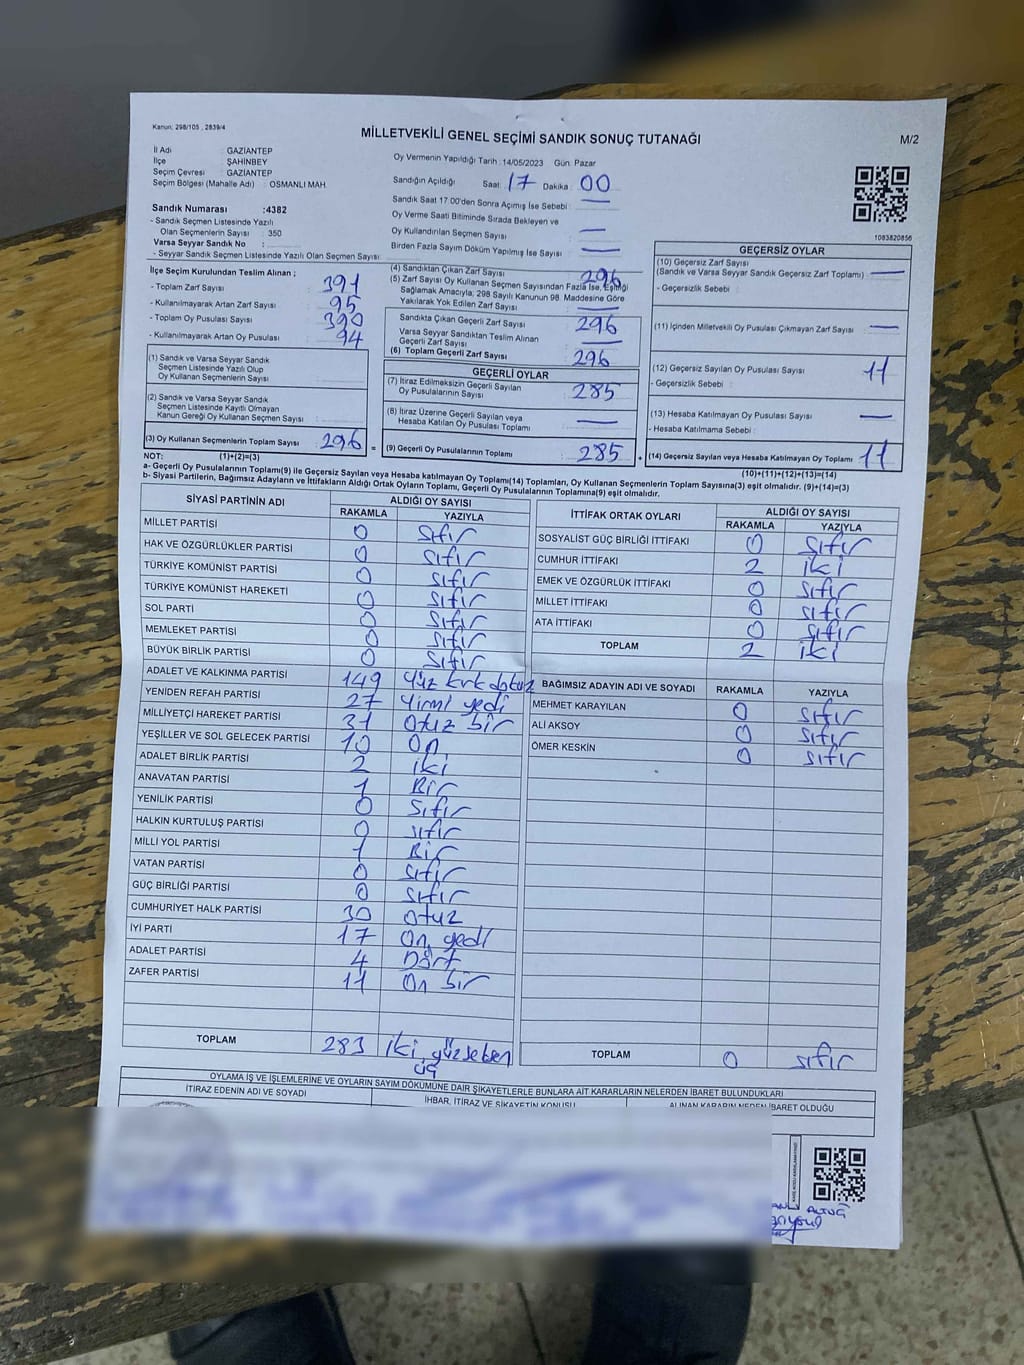 Kanun: 298/105 , 2839/4
MİLLETVEKİLİ GENEL SEÇİMİ SANDIK SONUÇ TUTANAĞI
M/2
İl Adı : GAZİANTEP
İlçe : ŞAHİNBEY
Seçim Çevresi : GAZİANTEP
Seçim Bölgesi (Mahalle Adı) : OSMANLI MAH.
Sandık Numarası :4382
- Sandık Seçmen Listesinde Yazılı
Olan Seçmenlerin Sayısı : 350
Varsa Seyyar Sandık No :
- Seyyar Sandık Seçmen Listesinde Yazılı Olan Seçmen Sayısı:
Oy Vermenin Yapıldığı Tarih : 14/05/2023 Gün: Pazar
Sandığın Açıldığı Saat: 17 Dakika : 00
Sandık Saat 17.00'den Sonra Açılmış İse Sebebi : —
Oy Verme Saati Bitiminde Sırada Bekleyen ve
Oy Kullandırılan Seçmen Sayısı : —
Birden Fazla Sayım Döküm Yapılmış İse Sayısı : —
1083820856
İlçe Seçim Kurulundan Teslim Alınan ;
- Toplam Zarf Sayısı : 391
- Kullanılmayarak Artan Zarf Sayısı : 95
- Toplam Oy Pusulası Sayısı : 390
- Kullanılmayarak Artan Oy Pusulası : 94
(1) Sandık ve Varsa Seyyar Sandık
Seçmen Listesinde Yazılı Olup
Oy Kullanan Seçmenlerin Sayısı :
(2) Sandık ve Varsa Seyyar Sandık
Seçmen Listesinde Kayıtlı Olmayan
Kanun Gereği Oy Kullanan Seçmen Sayısı :
(3) Oy Kullanan Seçmenlerin Toplam Sayısı : 296
(1)+(2)=(3)
(4) Sandıktan Çıkan Zarf Sayısı : 296
(5) Zarf Sayısı Oy Kullanan Seçmen Sayısından Fazla İse, Eşitliği
Sağlamak Amacıyla; 298 Sayılı Kanunun 98. Maddesine Göre
Yakılarak Yok Edilen Zarf Sayısı : —
Sandıkta Çıkan Geçerli Zarf Sayısı : 296
Varsa Seyyar Sandıktan Teslim Alınan
Geçerli Zarf Sayısı : —
(6) Toplam Geçerli Zarf Sayısı : 296
GEÇERLİ OYLAR
(7) İtiraz Edilmeksizin Geçerli Sayılan
Oy Pusulalarının Sayısı : 285
(8) İtiraz Üzerine Geçerli Sayılan veya
Hesaba Katılan Oy Pusulası Toplamı : —
= (9) Geçerli Oy Pusulalarının Toplamı : 285 +
GEÇERSİZ OYLAR
(10) Geçersiz Zarf Sayısı
(Sandık ve Varsa Seyyar Sandık Geçersiz Zarf Toplamı) : —
- Geçersizlik Sebebi :
(11) İçinden Milletvekili Oy Pusulası Çıkmayan Zarf Sayısı : —
(12) Geçersiz Sayılan Oy Pusulası Sayısı : 11
- Geçersizlik Sebebi :
(13) Hesaba Katılmayan Oy Pusulası Sayısı : —
- Hesaba Katılmama Sebebi :
(14) Geçersiz Sayılan veya Hesaba Katılmayan Oy Toplamı : 11
(10)+(11)+(12)+(13)=(14)
NOT:
a- Geçerli Oy Pusulalarının Toplamı(9) ile Geçersiz Sayılan veya Hesaba katılmayan Oy Toplamı(14) Toplamları, Oy Kullanan Seçmenlerin Toplam Sayısına(3) eşit olmalıdır. (9)+(14)=(3)
b- Siyasi Partilerin, Bağımsız Adayların ve İttifakların Aldığı Ortak Oyların Toplamı, Geçerli Oy Pusulalarının Toplamına(9) eşit olmalıdır.
SİYASİ PARTİNİN ADI ALDIĞI OY SAYISI
RAKAMLA YAZIYLA
MİLLET PARTİSİ 0 sıfır
HAK VE ÖZGÜRLÜKLER PARTİSİ 0 sıfır
TÜRKİYE KOMÜNİST PARTİSİ 0 sıfır
TÜRKİYE KOMÜNİST HAREKETİ 0 sıfır
SOL PARTİ 0 sıfır
MEMLEKET PARTİSİ 0 sıfır
BÜYÜK BİRLİK PARTİSİ 0 sıfır
ADALET VE KALKINMA PARTİSİ 149 Yüz kırk dokuz
YENİDEN REFAH PARTİSİ 27 Yirmi yedi
MİLLİYETÇİ HAREKET PARTİSİ 31 Otuz bir
YEŞİLLER VE SOL GELECEK PARTİSİ 10 On
ADALET BİRLİK PARTİSİ 2 iki
ANAVATAN PARTİSİ 1 Bir
YENİLİK PARTİSİ 0 Sıfır
HALKIN KURTULUŞ PARTİSİ 0 sıfır
MİLLİ YOL PARTİSİ 1 Bir
VATAN PARTİSİ 0 sıfır
GÜÇ BİRLİĞİ PARTİSİ 0 sıfır
CUMHURİYET HALK PARTİSİ 30 otuz
İYİ PARTİ 17 On yedi
ADALET PARTİSİ 4 Dört
ZAFER PARTİSİ 11 On bir
TOPLAM 283 iki yüzseksen
üç
İTTİFAK ORTAK OYLARI ALDIĞI OY SAYISI
RAKAMLA YAZIYLA
SOSYALİST GÜÇ BİRLİĞİ İTTİFAKI 0 sıfır
CUMHUR İTTİFAKI 2 iki
EMEK VE ÖZGÜRLÜK İTTİFAKI 0 sıfır
MİLLET İTTİFAKI 0 sıfır
ATA İTTİFAKI 0 sıfır
TOPLAM 2 iki
BAĞIMSIZ ADAYIN ADI VE SOYADI RAKAMLA YAZIYLA
MEHMET KARAYILAN 0 sıfır
ALİ AKSOY 0 sıfır
ÖMER KESKİN 0 sıfır
TOPLAM 0 sıfır
OYLAMA İŞ VE İŞLEMLERİNE VE OYLARIN SAYIM DÖKÜMÜNE DAİR ŞİKAYETLERLE BUNLARA AİT KARARLARIN NELERDEN İBARET BULUNDUKLARI
İTİRAZ EDENİN ADI VE SOYADI İHBAR, İTİRAZ VE ŞİKAYETİN KONUSU ALINAN KARARIN NEDEN İBARET OLDUĞU
ALTUĞ